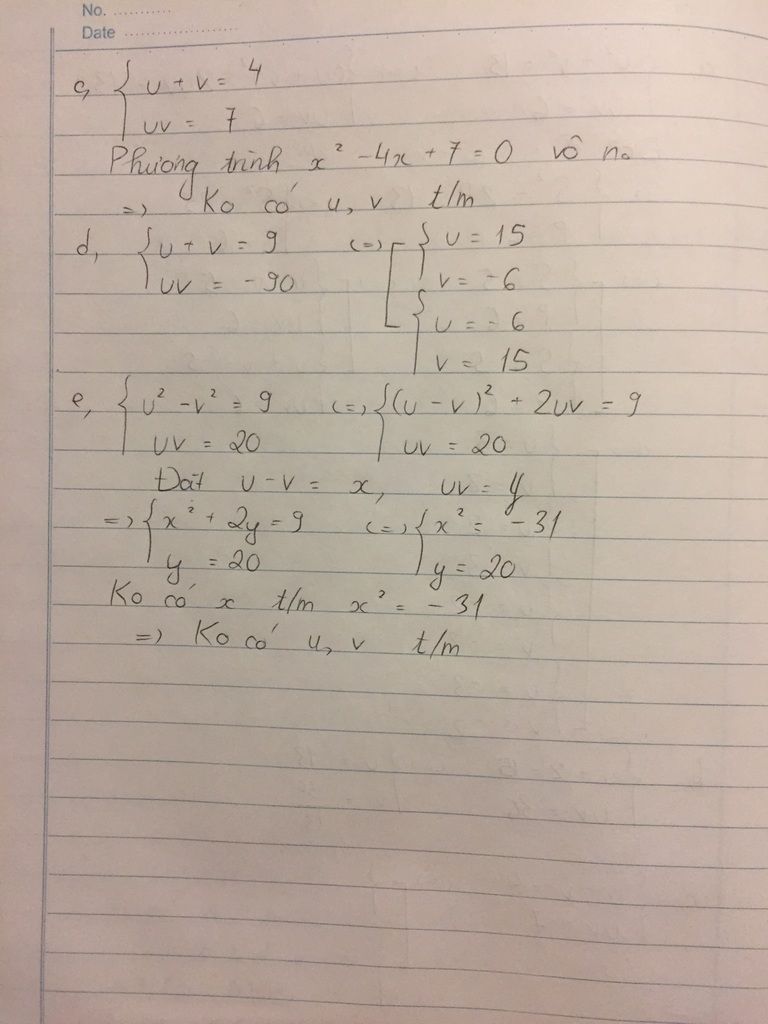 No. ............
Date ........................
c, { u + v = 4
uv = 7
Phương trình x² - 4x + 7 = 0 vô no
=> Ko có u, v t/m
d, { u + v = 9 <=> [ { u = 15
uv = -90 v = -6
{ u = -6
v = 15
e, { u² - v² = 9 <=> { (u - v)² + 2uv = 9
uv = 20 uv = 20
Đặt u - v = x, uv = y
=> { x² + 2y = 9 <=> { x² = -31
y = 20 y = 20
Ko có x t/m x² = -31
=> Ko có u, v t/m